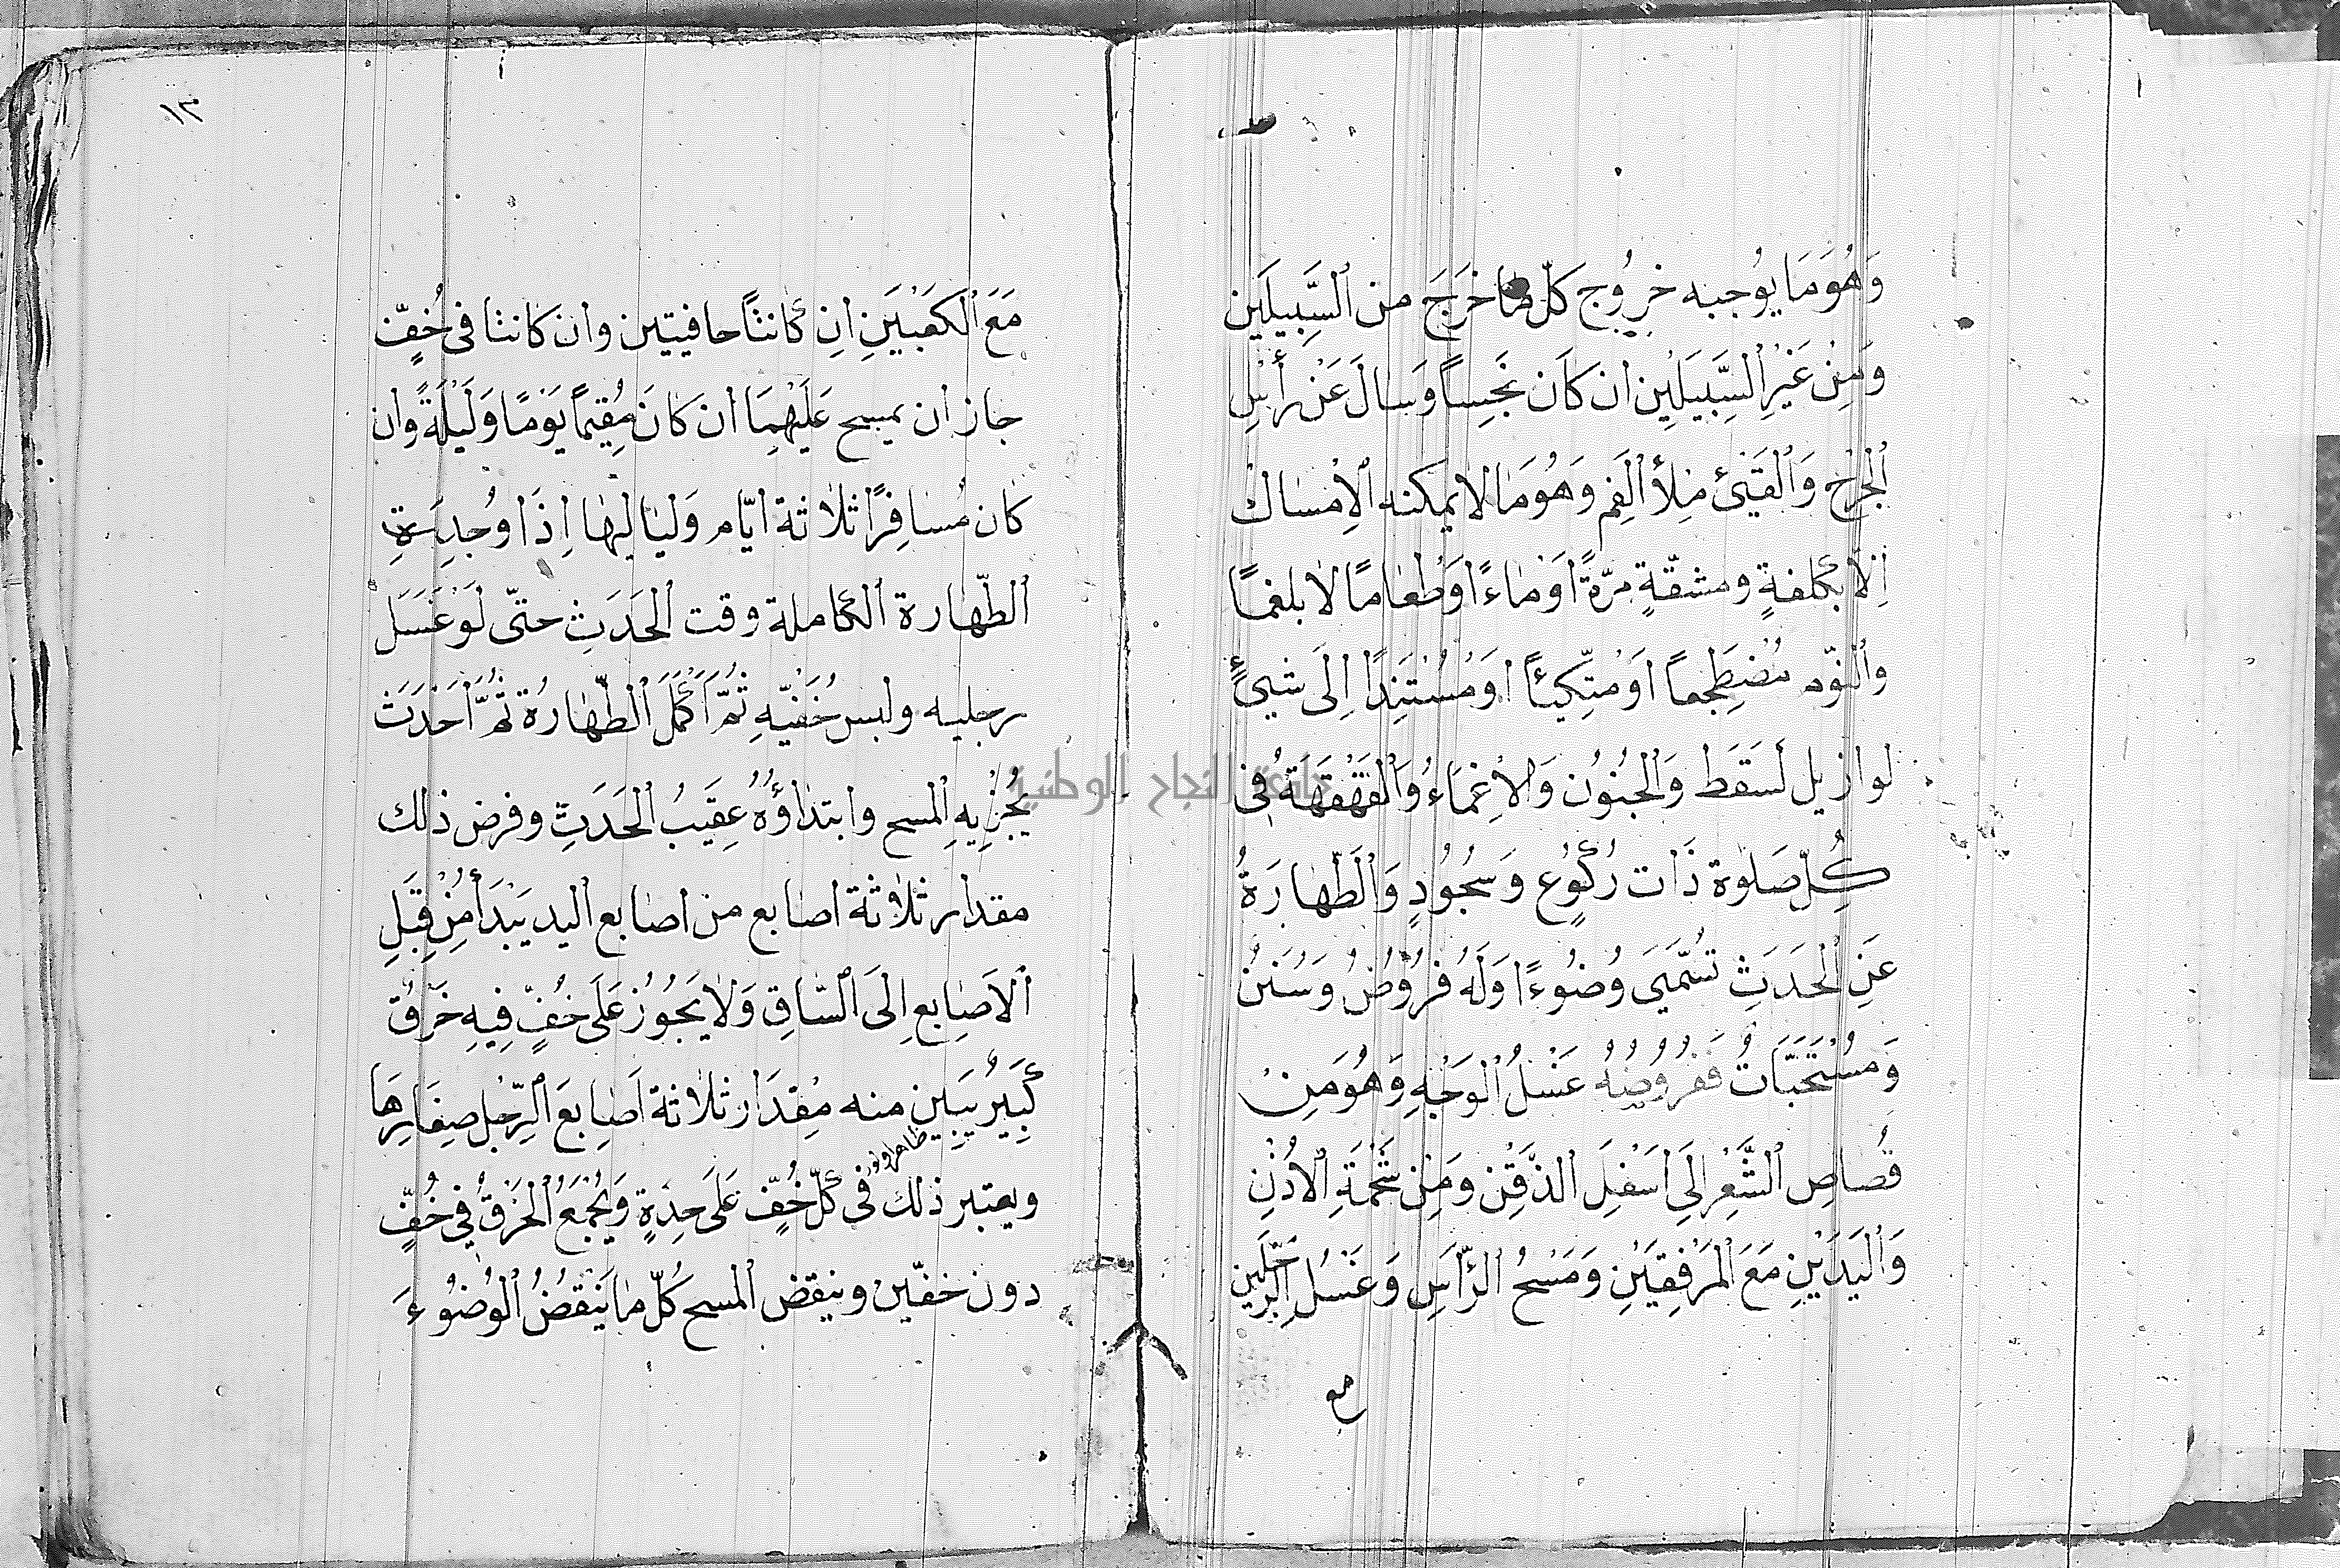 وَهُوَ مَا يُوجبه خرُوج كلّ ما خَرَجَ من ٱلسَّبِيلَين
وَمِنْ غَيْرِ ٱلسَّبِيَلَيْنِ ان كَاَن نَجَسِاً وَسَالَ عَنْ رَأسِ
ٱلجرْحِ وَٱلقَيْئ مِلأ اَلفَمِ وَهُوَ مَا لا يمكنه اٱلاِمْسَاك
اِلاَّ بكُلفةٍ ومشقّةٍ مرّةً اوَ مَاءً اوَ طعَامًا لا بلغمًا
وٱلنوّم مُضطَجِعاً اوَ مُتّكِئاً اوَ مُسْتَنِدًا اِلَى شَيْئٍ
لوازيل لَسَقَط وَٱلجُنُوُن وَٱلاِغمَاءُ وَٱلقَهْقَهَةُ فِى
كُلِّ صَلوٰة ذَات رُكُوعٍ وَسُجُودٍ وَٱلطَّهَارَةُ
عَنِ ٱلحَدَثِ تُسَمّىَ وُضُوءًا وَلَهُ فرُوُضٌ وَسُنَنٌ
وَمُسْتَحَبَّاتٌ فَفرُوُضهُ غَسْلُ ٱلوَجْهِ وَهُوَ مِنْ
قُصَاصِ ٱلشَّعْرِ اِلىَ اَسْفَلِ ٱلذَّقَنِ وَمِنْ شَحْمَةِ ٱلاُذُنِ
وَٱليَدَيْنِ مَعَ ٱلمَرْفِقَيَنِْ وَمَسْحُ ٱلرّأَسِ وَغَسْلُ ٱلرِّجْلَين
مع
١٣
مَعَ ٱلكَعَبْيَنِ اِن كَانتاَ حافيتين وان كانتا فى خُفٍّ
جاز ان يمسح عَلَيْهِمَا ان كَانَ مُقِيماً يَوْمًا وَلَيْلَةً وان
كان مُسَافِرًا ثلاثة ايّام وَلياليهَا اِذَا وُجِدِتِ
ٱلطّهارة ٱلكاملة وقت ٱلحَدَثِ حتىّ لَوْ غَسَلَ
رجليه ولبس خُفّيْهِ ثُمّ اَكْمَلَ ٱلطّهَارةُ ثُمَّ اَحْدَثَ
يُجْزِيهِ ٱلمسح وابتداؤُهُ عِقَيبُ ٱلحَدَثِ وفرض ذلك
مقدار ثلاثة اصابع من اصابع اليد يَبْدَأ مِنْ قِبَلِ
ٱلاَصَابِعِ اِلَى ٱلسّاقِ وَلا يَجُوُزُ عَلَى خُفٍّ فِيهِ خَرْقٌ
كَبِيرٌ يبَين منه مِقدَار ثلاثة اَصَابِعَ ٱلرِّجْل صِغَارِهَا
ويعتبر ذلك فى كلّ خُفٍّ عَلَى حِدَةٍ وَيُجْمَعُ ٱلخَرْقُ فِي خُفٍّ
دون خفّين وينقض ٱلمسح كُلّ مَا يَنْقُضُ ٱلوُضُوُءَ
جامعة النجاح الوطنية